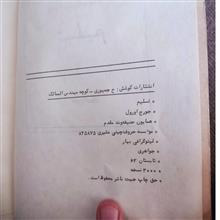 انتشارات کوشش: خ جمهوری - کوچه مهندس الممالک
تسلیم
جورج اورول
همایون حنیفه‌وند مقدم
موسسه حروفچینی مشیری ۸۴۵۸۷۵
لیتوگرافی بهار
جواهری
تابستان ۶۲
۳۰۰۰ نسخه
حق چاپ جهت ناشر محفوظ است.